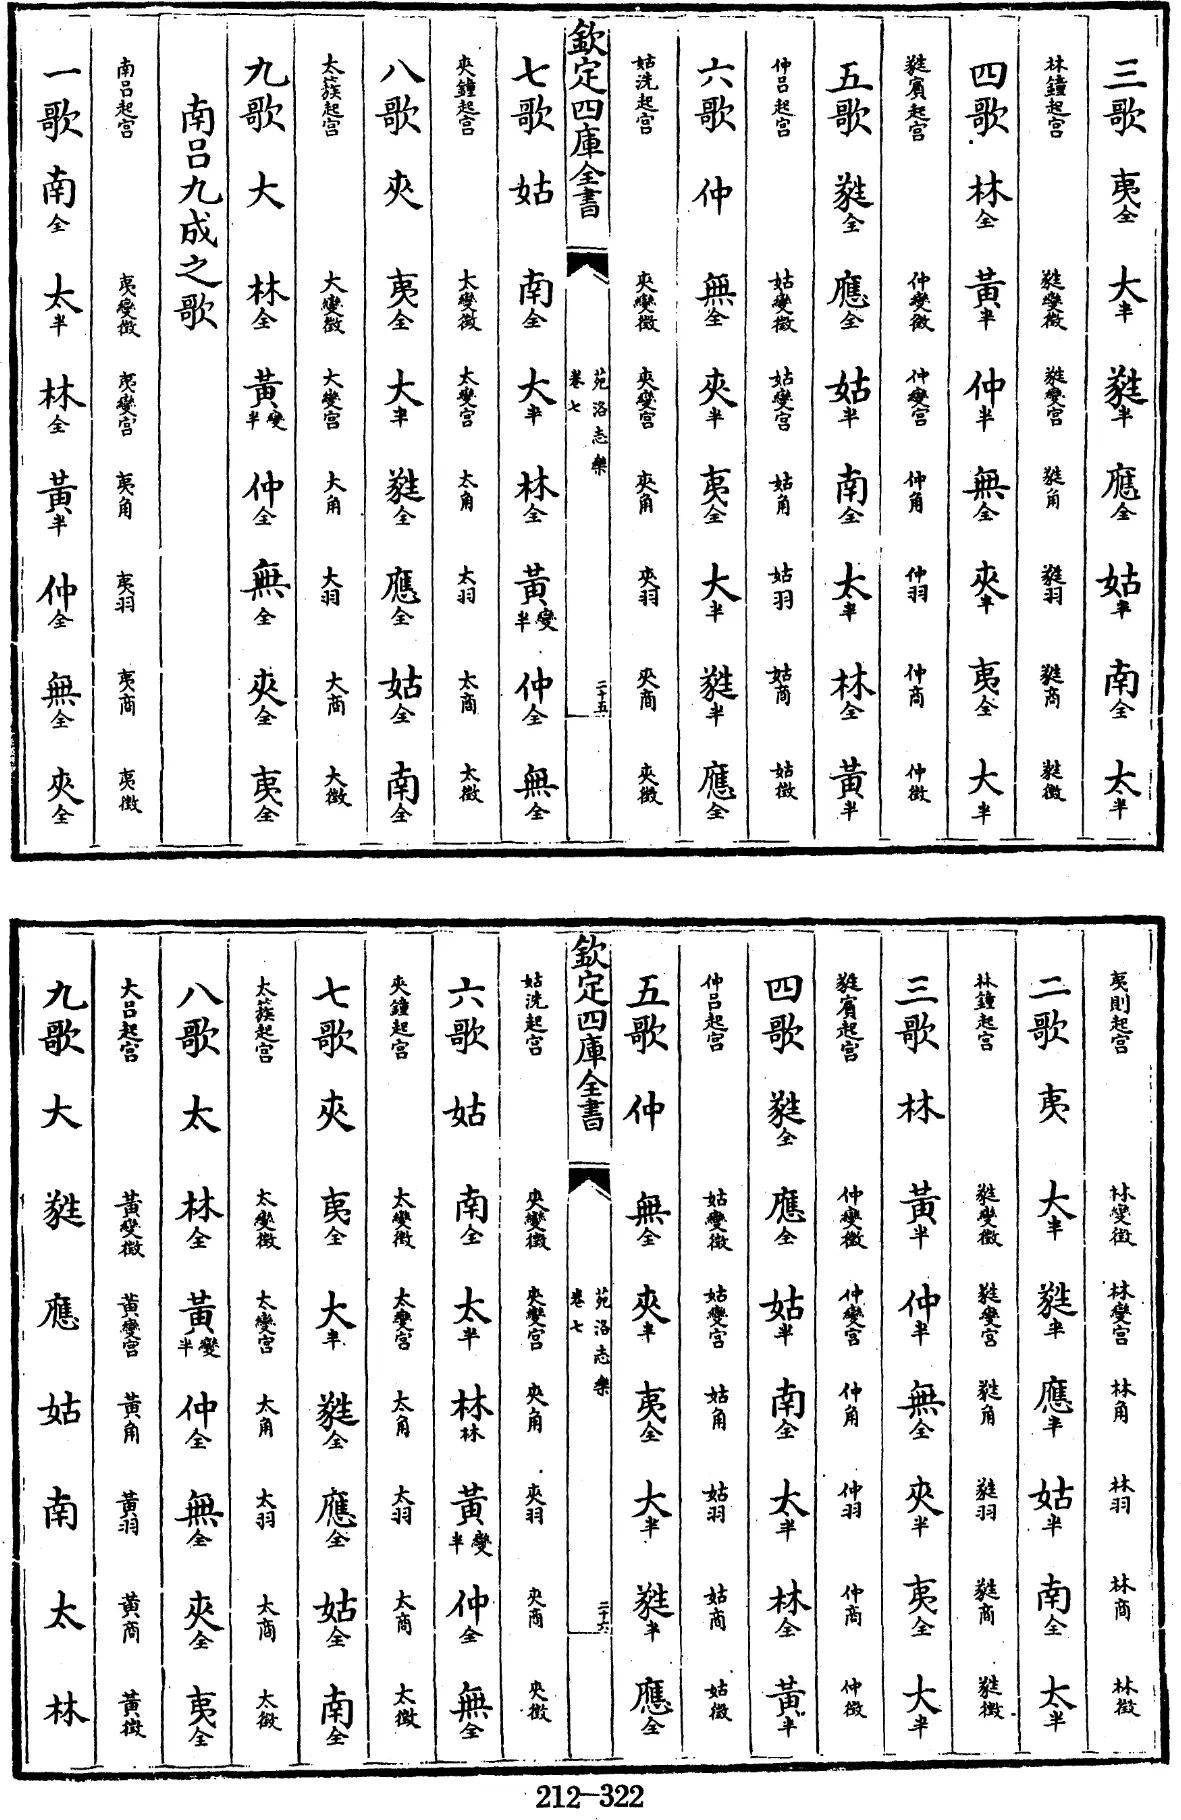 三歌 夷全 大半 蕤半 應全 姑半 南全 太半
林鐘起宫 蕤變徵 蕤變宫 蕤角 蕤羽 蕤商 蕤徵
四歌 林全 黃半 仲半 無全 夾半 夷全 大半
蕤賓起宫 仲變徵 仲變宫 仲角 仲羽 仲商 仲徵
五歌 蕤全 應全 姑半 南全 太半 林全 黃半
仲吕起宫 姑變徵 姑變宫 姑角 姑羽 姑商 姑徵
六歌 仲 無全 夾半 夷全 大半 蕤半 應全
姑洗起宫 夾變徵 夾變宫 夾角 夾羽 夾商 夾徵
欽定四庫全書
苑洛志樂
卷七
二十五
七歌 姑 南全 大半 林全 黃變半 仲全 無全
夾鐘起宫 太變徵 太變宫 太角 太羽 太商 太徵
八歌 夾 夷全 大半 蕤全 應全 姑全 南全
太簇起宫 大變徵 大變宫 大角 大羽 大商 大徵
九歌 大 林全 黃變半 仲全 無全 夾全 夷全
南吕九成之歌
南吕起宫 夷變徵 夷變宫 夷角 夷羽 夷商 夷徵
一歌 南全 太半 林全 黃半 仲全 無全 夾全
夷則起宫 林變徵 林變宫 林角 林羽 林商 林徵
二歌 夷 大半 蕤半 應半 姑半 南全 太半
林鐘起宫 蕤變徵 蕤變宫 蕤角 蕤羽 蕤商 蕤徵
三歌 林 黃半 仲半 無全 夾半 夷全 大半
蕤賓起宫 仲變徵 仲變宫 仲角 仲羽 仲商 仲徵
四歌 蕤全 應全 姑半 南全 太半 林全 黃半
仲吕起宫 姑變徵 姑變宫 姑角 姑羽 姑商 姑徵
五歌 仲 無全 夾半 夷全 大半 蕤半 應全
欽定四庫全書
苑洛志樂
卷七
二十六
姑洗起宫 夾變徵 夾變宫 夾角 夾羽 夾商 夾徵
六歌 姑 南全 太半 林林 黃變半 仲全 無全
夾鐘起宫 太變徵 太變宫 太角 太羽 太商 太徵
七歌 夾 夷全 大半 蕤全 應全 姑全 南全
太簇起宫 太變徵 太變宫 太角 太羽 太商 太徵
八歌 太 林全 黃變半 仲全 無全 夾全 夷全
大吕起宫 黃變徵 黃變宫 黃角 黃羽 黃商 黃徵
九歌 大 蕤 應 姑 南 太 林
212-322